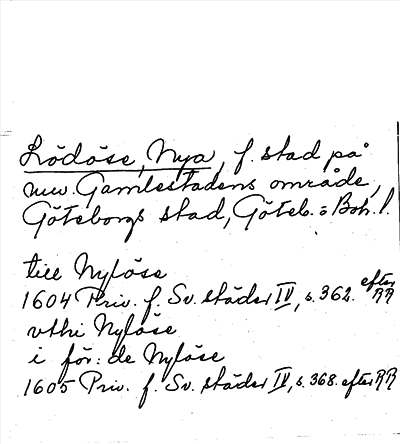 Lödöse, Nya, f. stad på
nuv. Gamlestadens område,
Göteborgs stad, Göteb. o Boh. l.
till Nylöse
1604 Priv. f. Sv. städer IV, s. 362. efter RR
vthi Nylöse
i för: de Nylöse
1605 Priv. f. Sv. städer IV, s. 368. efter RR